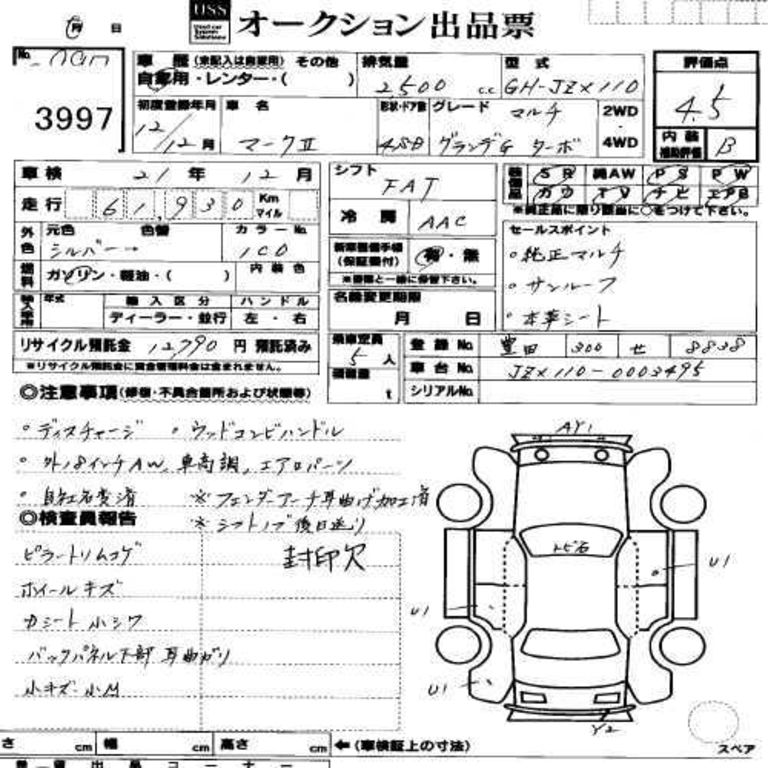 月 日
USS Used car System Solutions オークション出品票
No.
3997
車歴 (未記入は自家用) その他
自家用・レンター・( )
排気量
2,500 cc
型式
GH-JZX110
評価点
4.5
内装 補助評価 B
初度登録年月
12/12月
車名
マークⅡ
形状・ドア数
4SD
グレード
マルチ
グランデG ターボ
2WD
・
4WD
車検 21年 12月
シフト
FAT
装備品 SR 純AW PS PW
カワ TV ナビ エアB
※純正品に限り該当に○をつけて下さい。
走行 61,930 Km マイル
冷房 AAC
外色 元色 色替 カラーNo.
シルバー→ 1C0
セールスポイント
○純正マルチ
○サンルーフ
○本革シート
新車整備手帳 (保証書付) 有・無
※書類と一緒に保管下さい。
燃料 ガソリン・軽油・( ) 内装色
輸入車用 年式 輸入区分 ハンドル
ディーラー・並行 左・右
名義変更期限
月 日
リサイクル預託金 12,790 円 預託済み
※リサイクル預託金に資金管理料金は含まれません。
乗車定員
5人
積載量
t
登録No. 豊田 300 せ 8838
車台No. JZX110-0003495
シリアルNo.
◎注意事項(修復・不具合箇所および状態等)
○ディスチャージ ○ウッドコンビハンドル
○外18インチAW、車高調、エアロパーツ
○自社名変済 ※フェンダーアーチ耳曲げ加工済
※シフトノブ後日送り
◎検査員報告
ピラートリムコゲ 封印欠
ホイールキズ
カシート小シワ
バックパネル下部耳曲がり
小キズ・小凹
AY1
トビ石
U1
U1
U1
Y2
スペア
さ cm 幅 cm 高さ cm ←(車検証上の寸法)